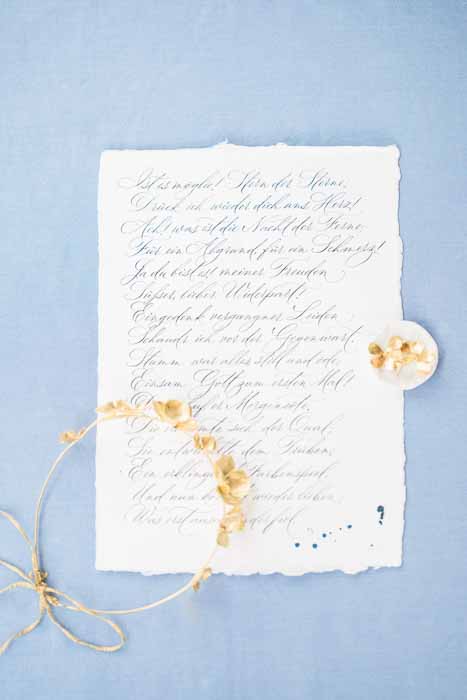 Ist es möglich! Stern der Sterne,
Drück ich wieder dich ans Herz!
Ach! was ist die Nacht der Ferne
Für ein Abgrund, für ein Schmerz!
Ja du bist es! meiner Freuden
Süßer, lieber Widerpart!
Eingedenk vergangner Leiden
Schaudr ich vor der Gegenwart.
Stumm war alles, still und öde,
Einsam Gott zum ersten Mal!
Morgenröte,
Die sich der Qual.
Sie dem Trüben
Ein Farbenspiel
Und nun wieder lieben
Was erst